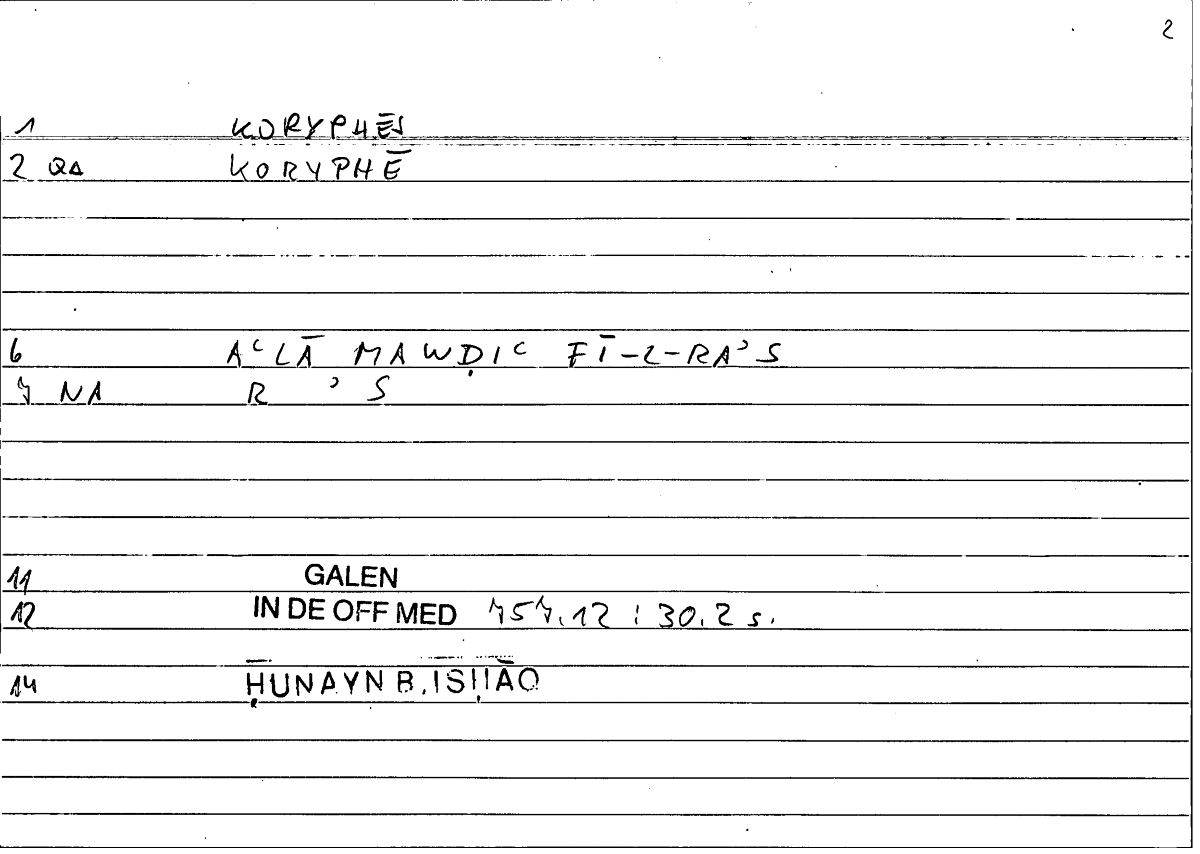 2
1 KORYPHĒS
2 QA KORYPHĒ
6 AʿLĀ MAWḌIʿ FĪ-L-RAʾS
7 NA R ʾ S
11 GALEN
12 IN DE OFF MED 757.12 : 30.2 s.
14 ḤUNAYN B. ISḤĀQ